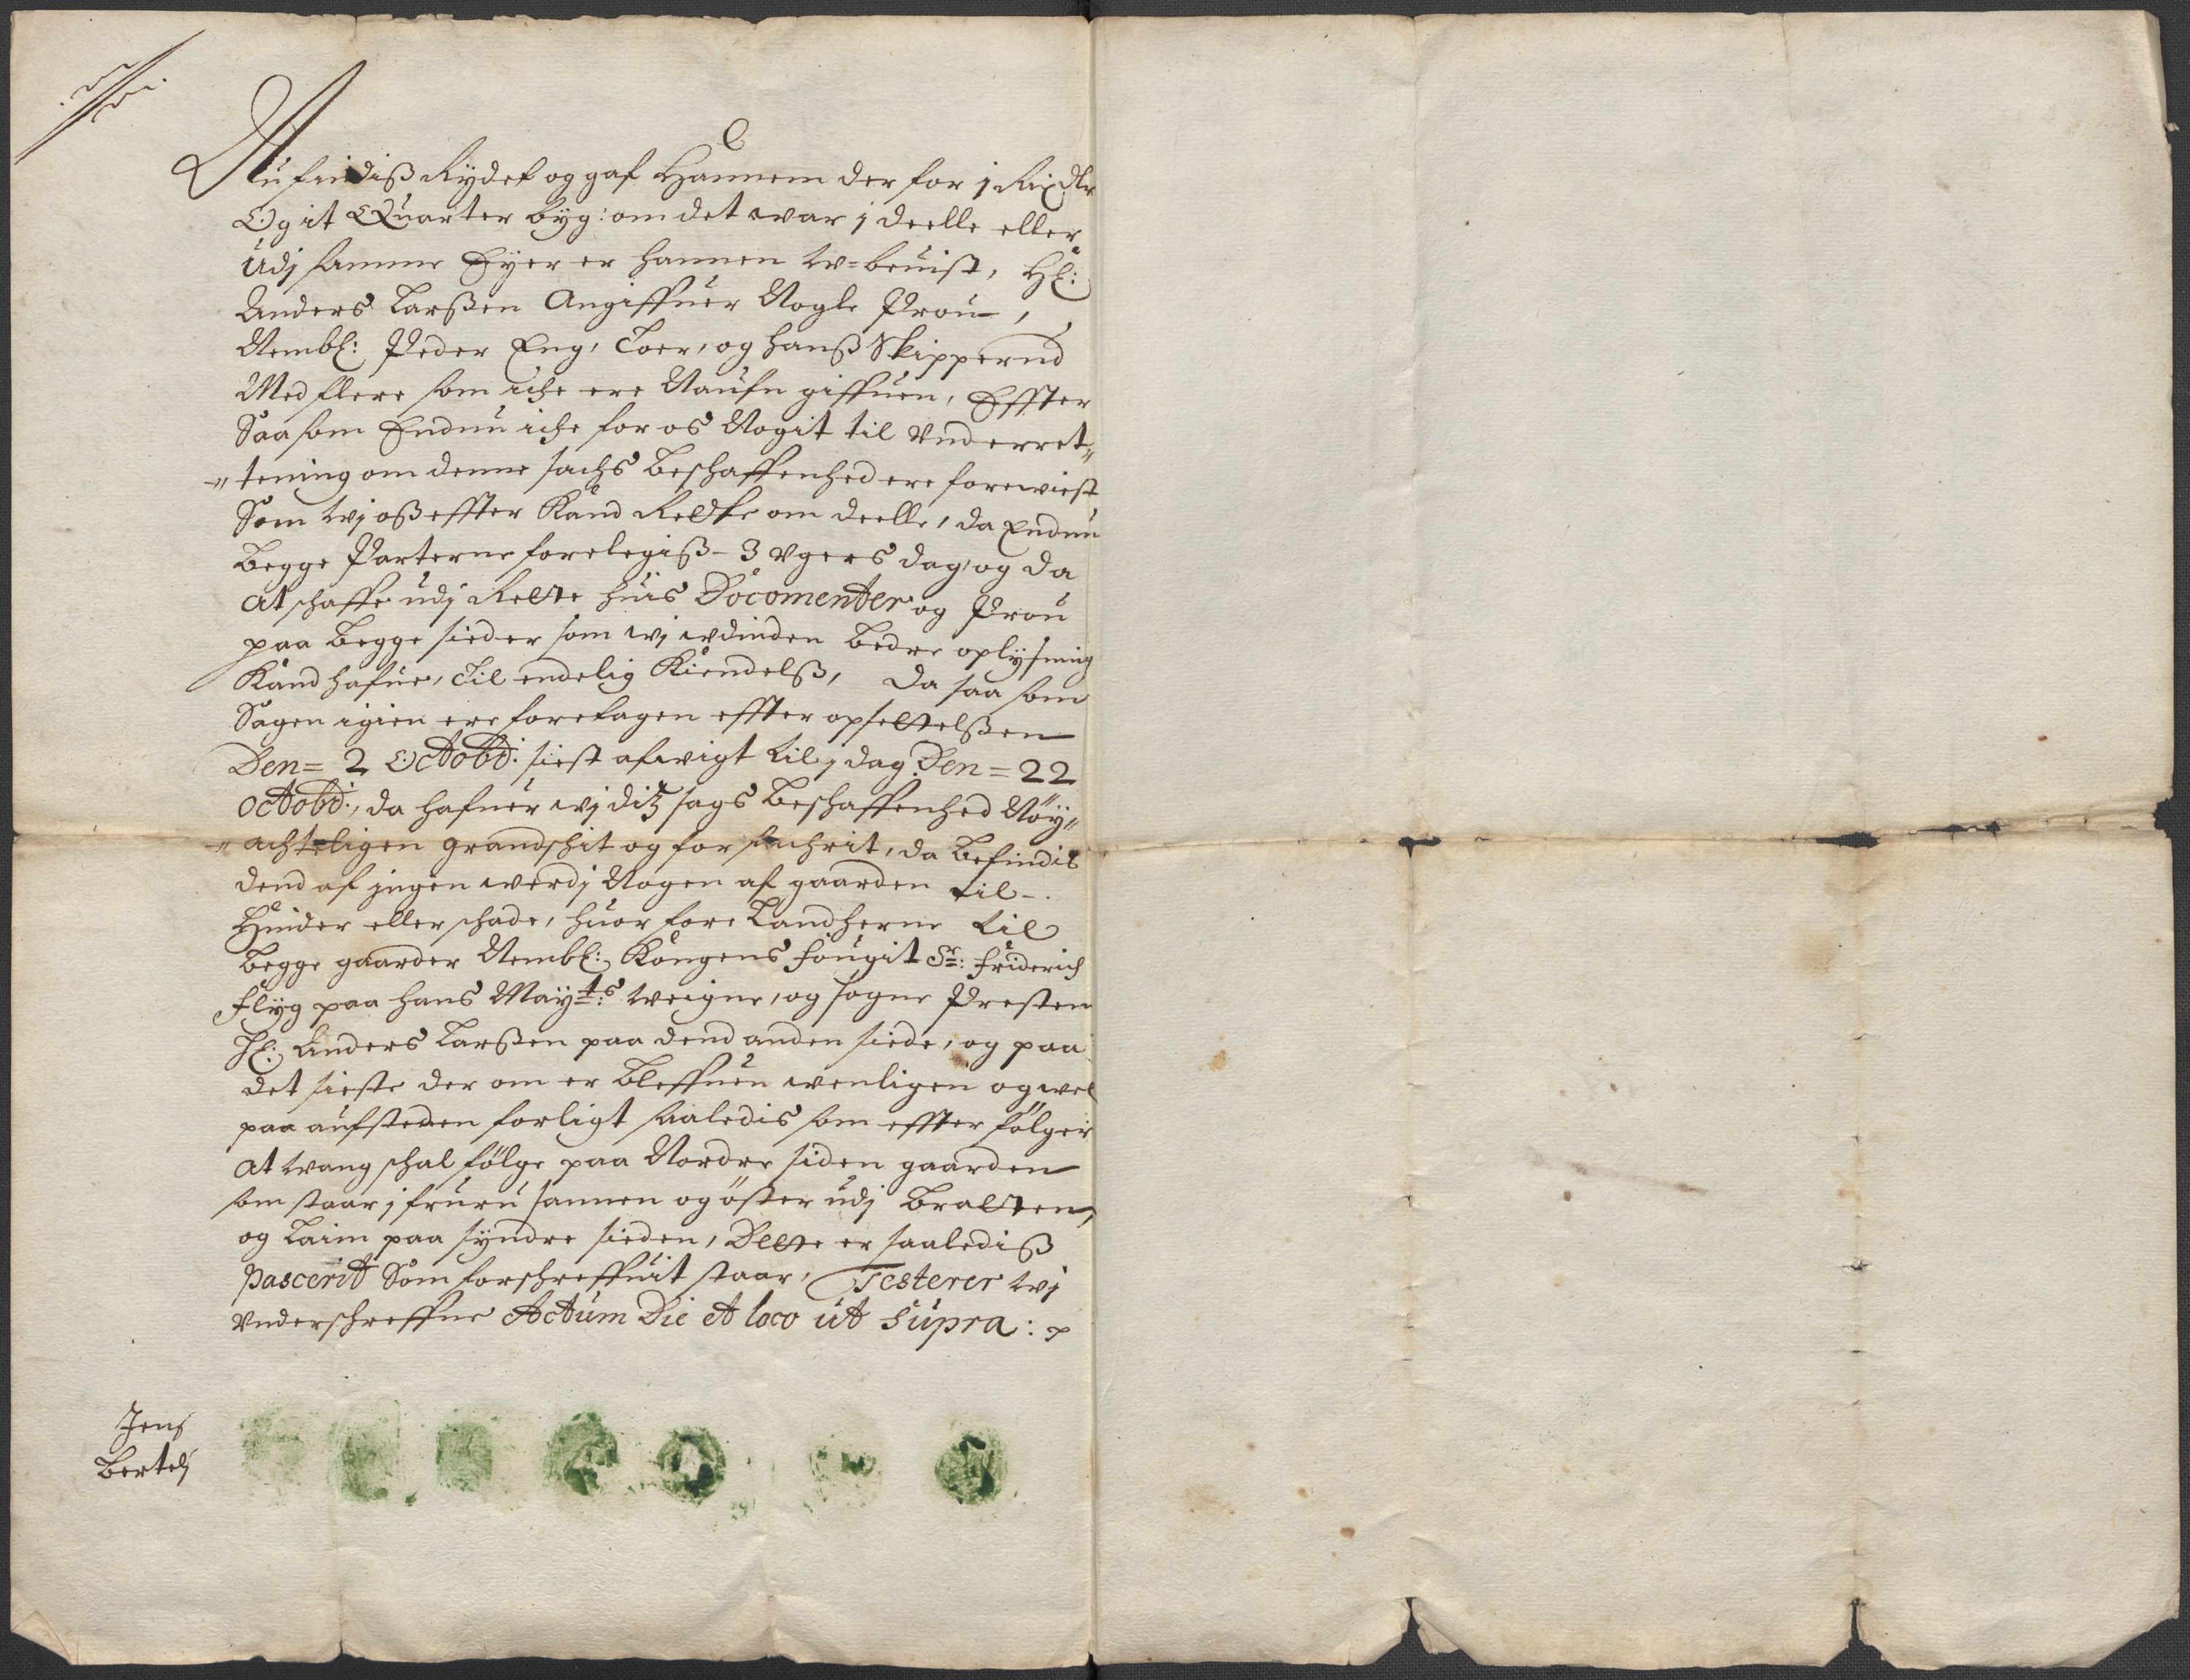 Aufindiß Rydet og gaf Hannem der for j Rixdlr
Og it Quarter byg: om det war j deelle eller
Udj samme Eyer er hannem w=beuist, Hl:
Anders Larßen Angiffuer Nogle Prou,
Nembl: Peder Eng, Toer, og Hanß Skipperud
Med flere som iche ere Naufn giffuen, Effter
Saasom Endnu iche for os Nogit til Underret„
„tening om denne sachs Beschaffenhed ere forewiest
Som wj oß effter Kand Rette om deelle, da Endnu
Begge Parterne forelegiß 3 Ugers dag, og da
At schaffe udj Rette huis Documenter og Prou
paa Begge sieder som wj widinden Bedre oplysning
Kand hafue, Til endelig Kiendelß, da saa som
Sagen igien ere foretagen effter opsettelßen
Den= 2 Octobr: siest afwigt til j dag Den= 22
Octobr:, da hafuer wj diß sags Beschaffenhed Nöy„
„achteligen grandschit og forfachrit, da Befindis
dend af jngen werdj Nogen af gaarden til
Hinder eller schade, huor fore Landherne til
Begge gaarder Nembl: Kongens fougit Sr: Friderich
Flyg paa Hans Mayts: weigne, og sogne Presten
Hl: Anders Larßen paa dend anden siede, og paa
det sieste der om er Bleffuen wenligen og wel
paa aufsteden forligt saaledis som effter fölger
At wang schal fölge paa Nordre siden gaarden
som staar j furu sannen og öster udj Bratten,
og Laim paa syndre sieden, Dette er saalediß
Pascerit Som forschreffuit staar, Testerer wj
Underschreffne Actum Die et loco ut supra:
Jens
Bertels